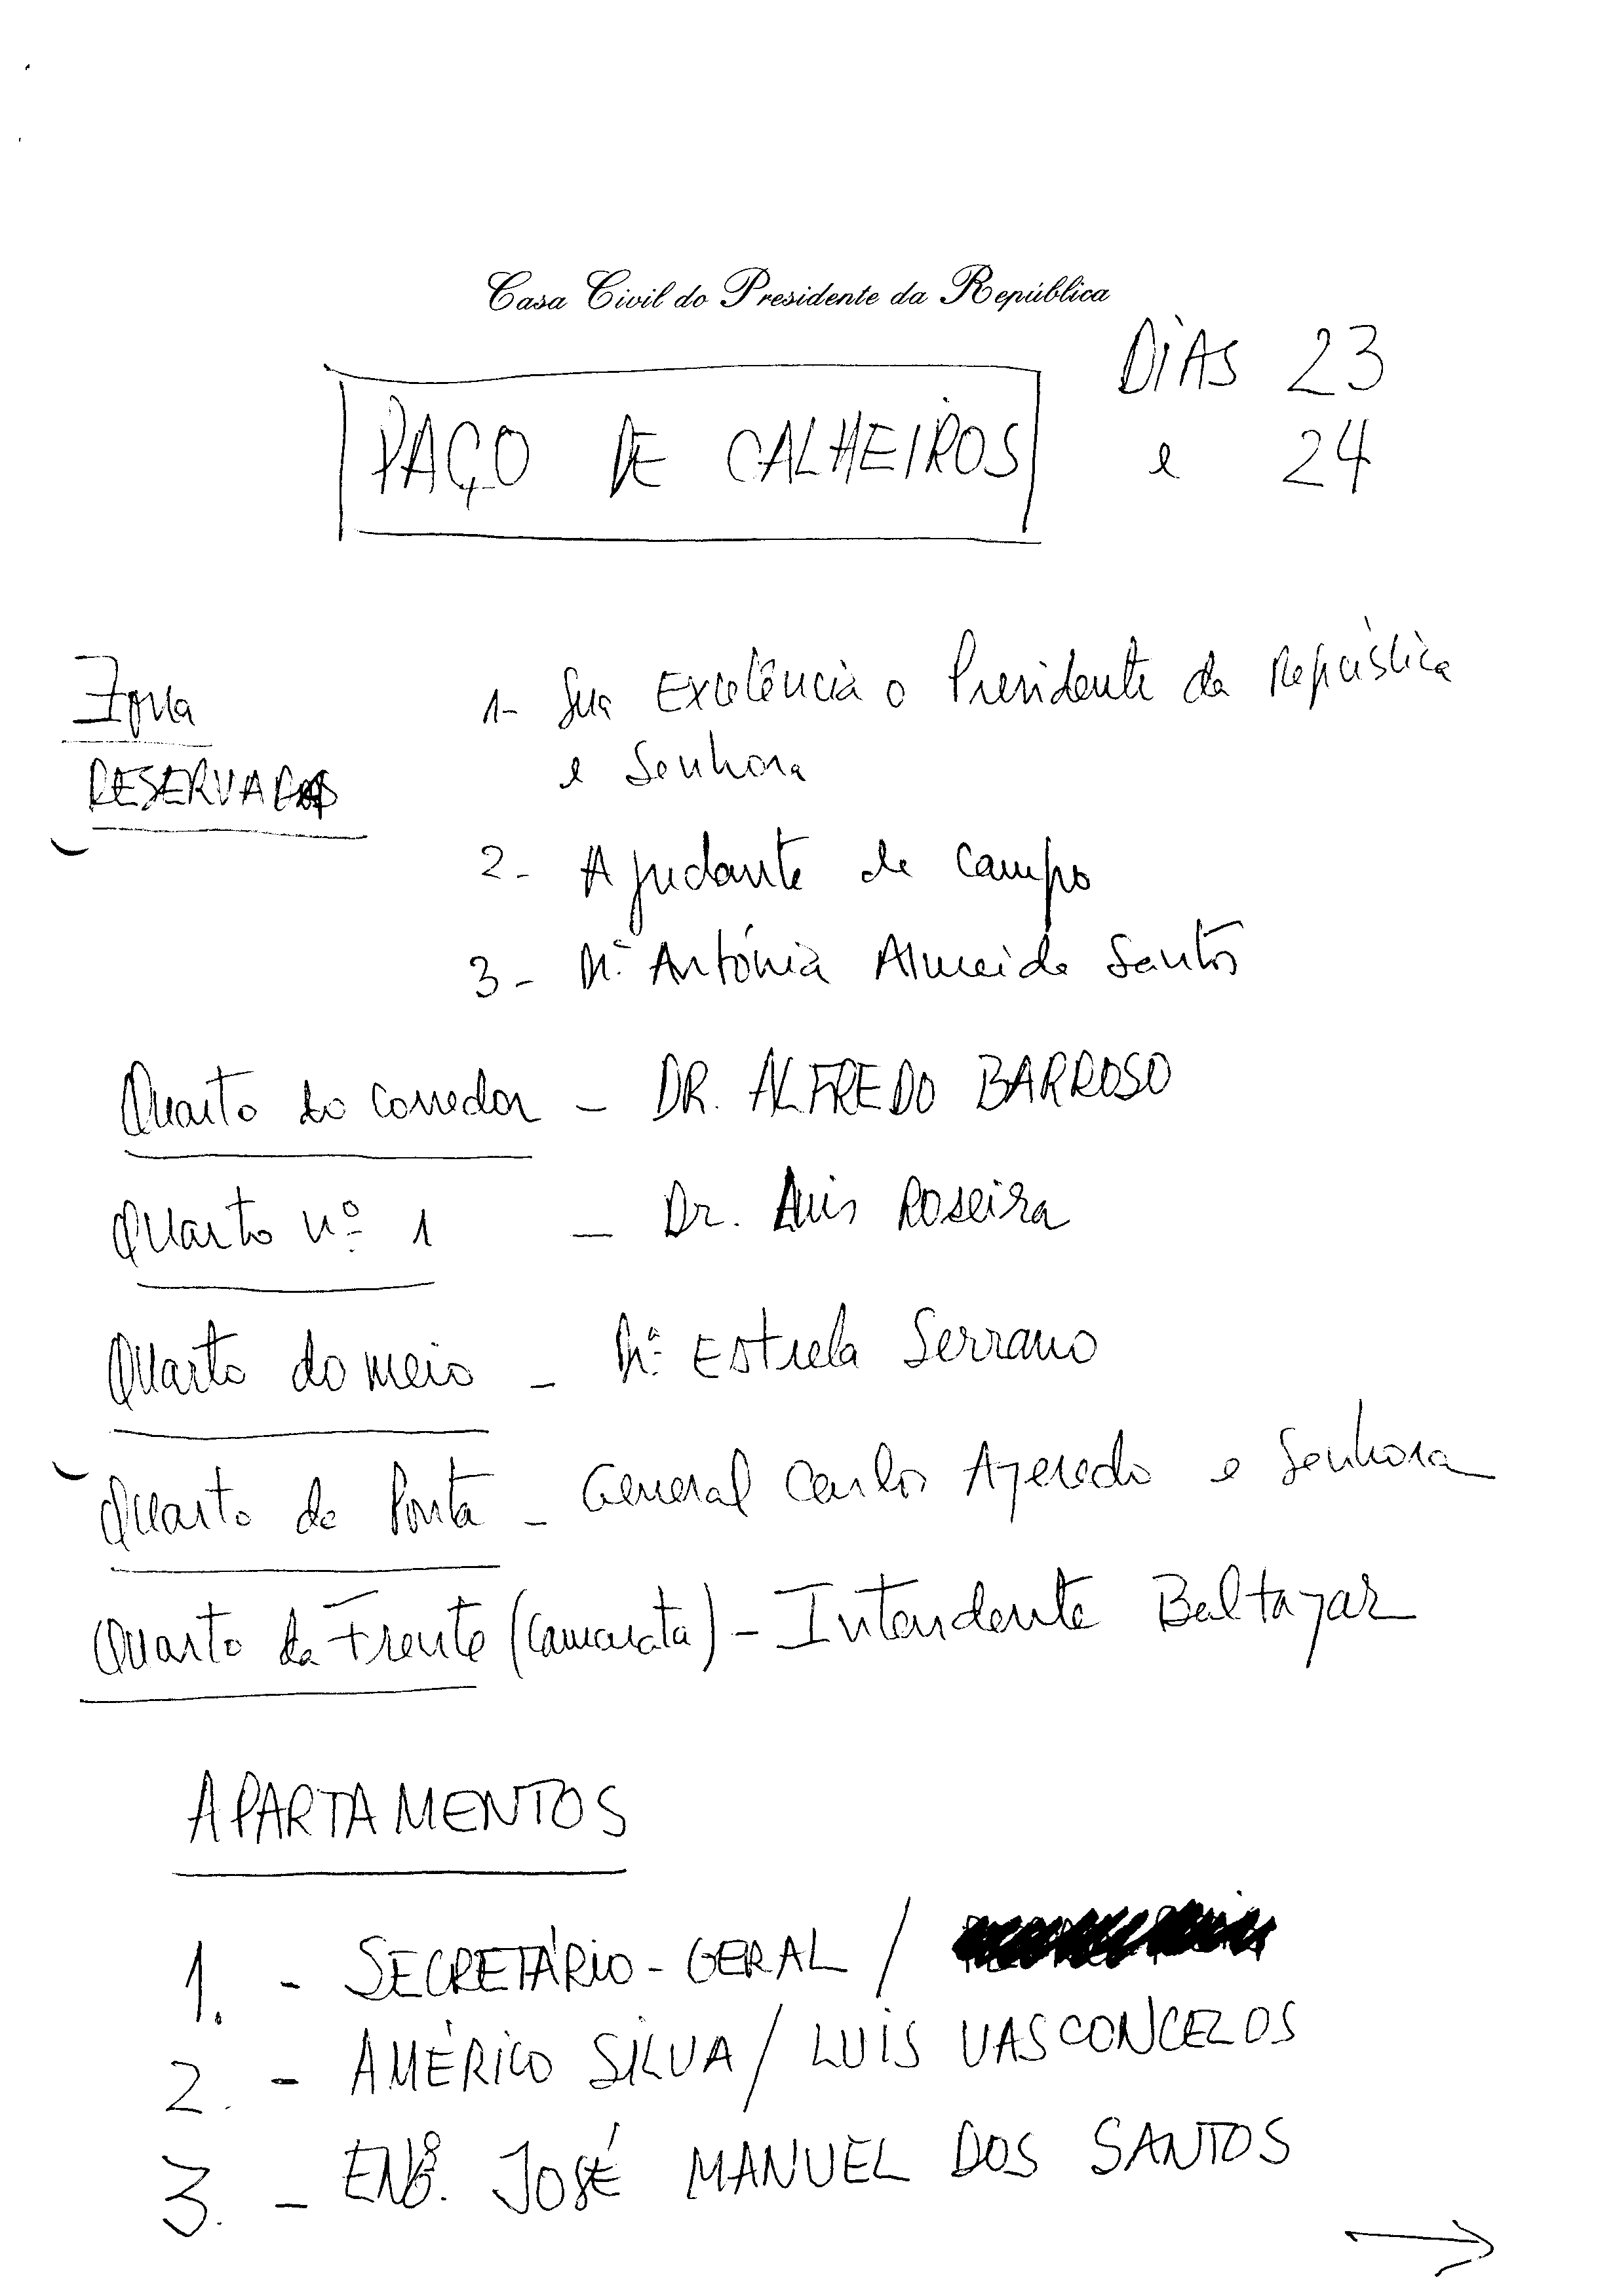 Casa Civil do Presidente da República
DIAS 23
PAÇO DE CALHEIROS e 24
Zona 1- Sua Excelência o Presidente da República
e Senhora
RESERVADA
2- Ajudante de Campo
3- Mª Antónia Almeida Santos
Quarto do corredor - DR. ALFREDO BARROSO
Quarto nº 1 - Dr. Luis Roseira
Quarto do meio - Mª Estrela Serrano
Quarto da Ponta - General Carlos Azeredo e Senhora
Quarto da Frente (Camarata) - Intendente Baltazar
APARTAMENTOS
1. - SECRETÁRIO-GERAL /
2. - AMÉRICO SILVA / LUIS VASCONCELOS
3. - ENGº. JOSÉ MANUEL DOS SANTOS